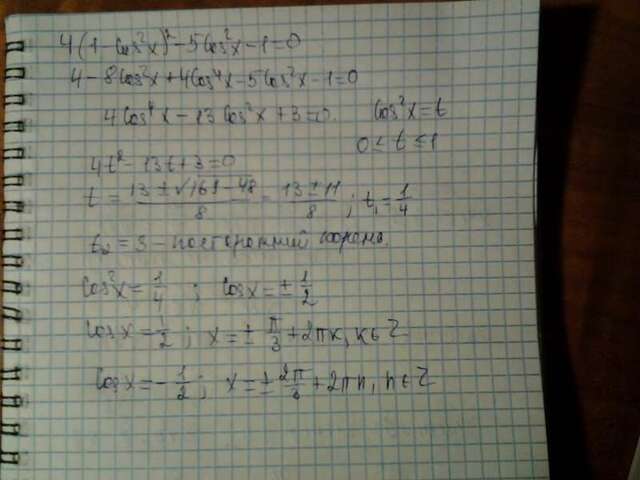 4(1-cos²x)²-5cos²x-1=0
4-8cos²x+4cos⁴x-5cos²x-1=0
4cos⁴x-13cos²x+3=0. cos²x=t
0≤t≤1
4t²-13t+3=0
t=(13±√169-48)/8=(13±11)/8; t₁=1/4
t₂=3-посторонний корень.
cos²x=1/4; cosx=±1/2
cosx=1/2; x=±π/3+2πk, k∈Z
cosx=-1/2; x=±2π/3+2πn, n∈Z